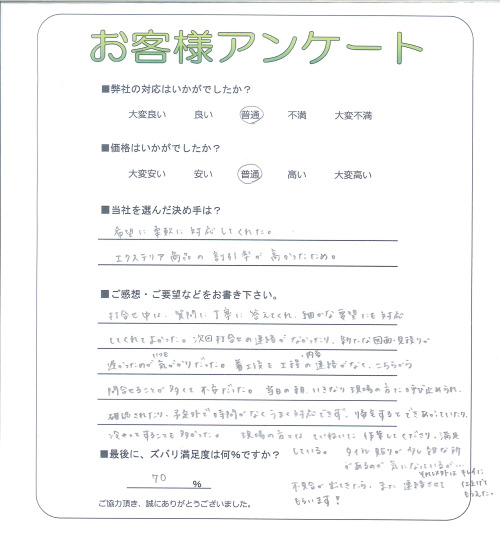 お客様アンケート
■弊社の対応はいかがでしたか？
大変良い 良い 普通 不満 大変不満
■価格はいかがでしたか？
大変安い 安い 普通 高い 大変高い
■当社を選んだ決め手は？
希望に柔軟に対応してくれた。
エクステリア商品の割引率が高かったため。
■ご感想・ご要望などをお書き下さい。
打合せ中は、質問に丁寧に答えてくれ、細かな要望にも対応
してくれてよかった。次回打合せの連絡がなかったり、新たな図面・見積りが
いつも ・内容
遅かったのが気がかりだった。着工後も工程の連絡がなく、こちらから
問合せることが多くて不安だった。当日の朝、いきなり現場の方に呼び止められ、
確認されたり、予定外で時間がなくうまく対応できず、帰宅するとできあがっていたり、
決めてすることも多かった。 現場の方々は ていねいに作業してくださり、満足
している。 タイル貼りが少し雑な所
■最後に、ズバリ満足度は何％ですか？
があるのが気になっているが…
それ以外は キレイに
仕上げて
もらえた。
70 %
不具合が出てきたら、また連絡させて
もらいます！
ご協力頂き、誠にありがとうございました。